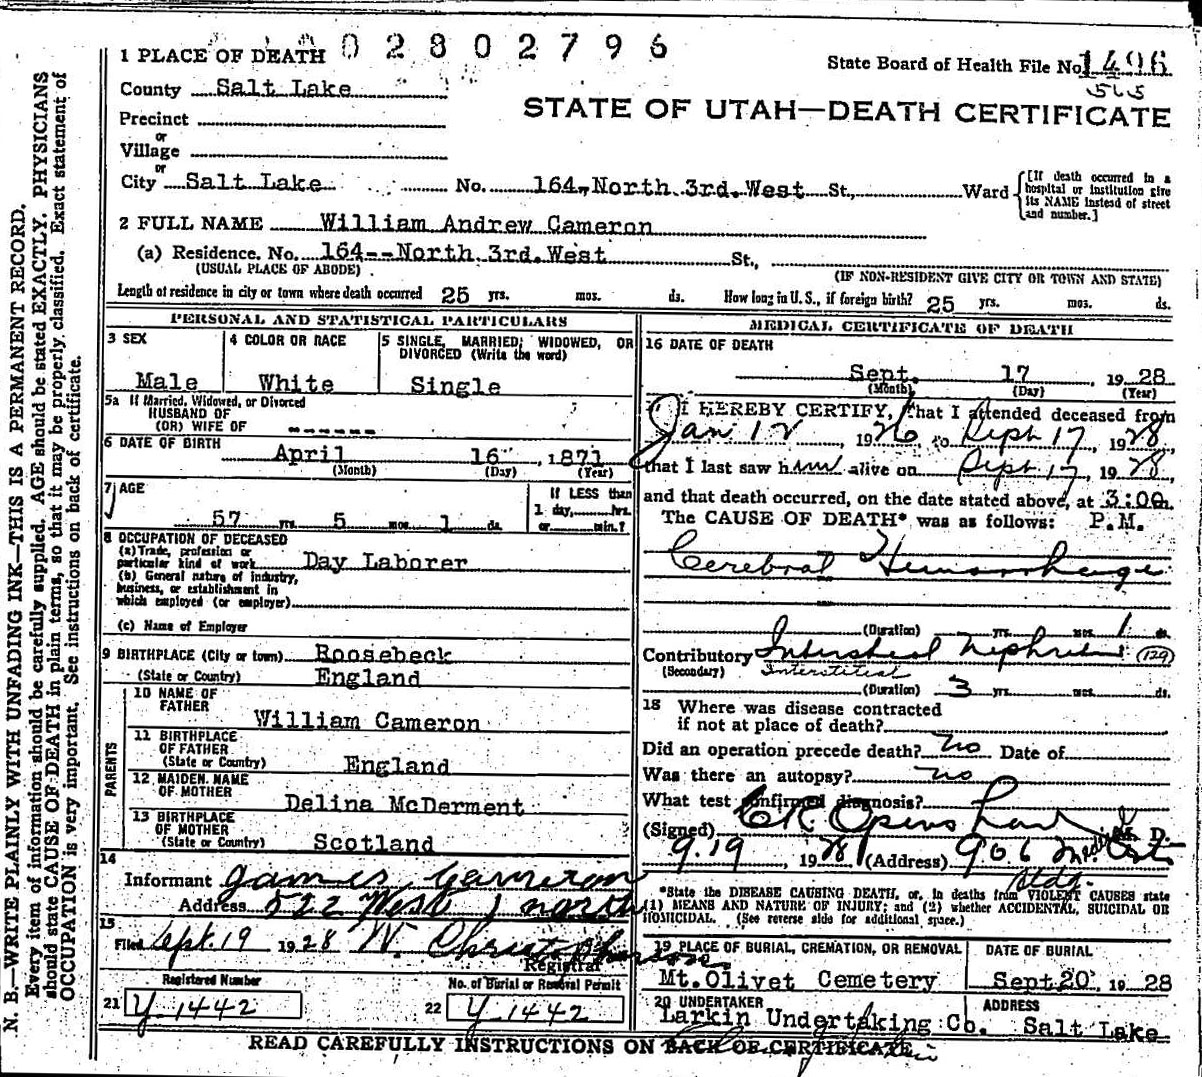 02802796
1 PLACE OF DEATH
State Board of Health File No. 1496
565
County Salt Lake
STATE OF UTAH—DEATH CERTIFICATE
Precinct
or
Village
or
City Salt Lake No. 164, North 3rd. West St., Ward
[If death occurred in a hospital or institution give its NAME instead of street and number.]
2 FULL NAME William Andrew Cameron
(a) Residence. No. 164--North 3rd. West St.,
(USUAL PLACE OF ABODE) (IF NON-RESIDENT GIVE CITY OR TOWN AND STATE)
Length of residence in city or town where death occurred 25 yrs. mos. ds. How long in U. S., if foreign birth? 25 yrs. mos. ds.
PERSONAL AND STATISTICAL PARTICULARS
3 SEX
Male
4 COLOR OR RACE
White
5 SINGLE, MARRIED, WIDOWED, OR
DIVORCED (Write the word)
Single
5a If Married, Widowed, or Divorced
HUSBAND OF
(OR) WIFE OF ------
6 DATE OF BIRTH
April 16, 1871
(Month) (Day) (Year)
7 AGE
57 yrs. 5 mos. 1 ds.
If LESS than
1 day, hrs.
or min.?
8 OCCUPATION OF DECEASED
(a) Trade, profession or
particular kind of work Day Laborer
(b) General nature of industry,
business, or establishment in
which employed (or employer)
(c) Name of Employer
9 BIRTHPLACE (City or town) Roosebeck
(State or Country) England
PARENTS
10 NAME OF
FATHER
William Cameron
11 BIRTHPLACE
OF FATHER
(State or Country) England
12 MAIDEN NAME
OF MOTHER
Delina McDerment
13 BIRTHPLACE
OF MOTHER
(State or Country) Scotland
14
Informant James Cameron
Address 522 West 1 north
15
Filed Sept. 19 1928 W. Christopherson
Registrar
Registered Number
21 Y-1442
No. of Burial or Removal Permit
22 Y-1442
MEDICAL CERTIFICATE OF DEATH
16 DATE OF DEATH
Sept. 17, 1928
(Month) (Day) (Year)
I HEREBY CERTIFY, that I attended deceased from
Jan 12, 1926 to Sept 17, 1928,
that I last saw him alive on Sept 17, 1928,
and that death occurred, on the date stated above, at 3:00 m.
The CAUSE OF DEATH* was as follows: P.M.
Cerebral Hemorrhage
(Duration) yrs. mos. 1 ds.
Contributory Intersteal Nephritis (129)
(Secondary) Interstitial
(Duration) 3 yrs. mos. ds.
18 Where was disease contracted
if not at place of death?
Did an operation precede death? no Date of
Was there an autopsy? no
What test confirmed diagnosis?
(Signed) C R Openshaw M. D.
9.19, 1928 (Address) 906 Medical Arts
Bldg.
*State the DISEASE CAUSING DEATH, or, in deaths from VIOLENT CAUSES state
(1) MEANS AND NATURE OF INJURY; and (2) whether ACCIDENTAL, SUICIDAL OR
HOMICIDAL. (See reverse side for additional space.)
19 PLACE OF BURIAL, CREMATION, OR REMOVAL
Mt. Olivet Cemetery
DATE OF BURIAL
Sept 20 1928
20 UNDERTAKER
Larkin Undertaking Co.
ADDRESS
Salt Lake
READ CAREFULLY INSTRUCTIONS ON BACK OF CERTIFICATE
N. B.—WRITE PLAINLY WITH UNFADING INK—THIS IS A PERMANENT RECORD.
Every item of information should be carefully supplied. AGE should be stated EXACTLY. PHYSICIANS
should state CAUSE OF DEATH in plain terms, so that it may be properly classified. Exact statement of
OCCUPATION is very important. See instructions on back of certificate.